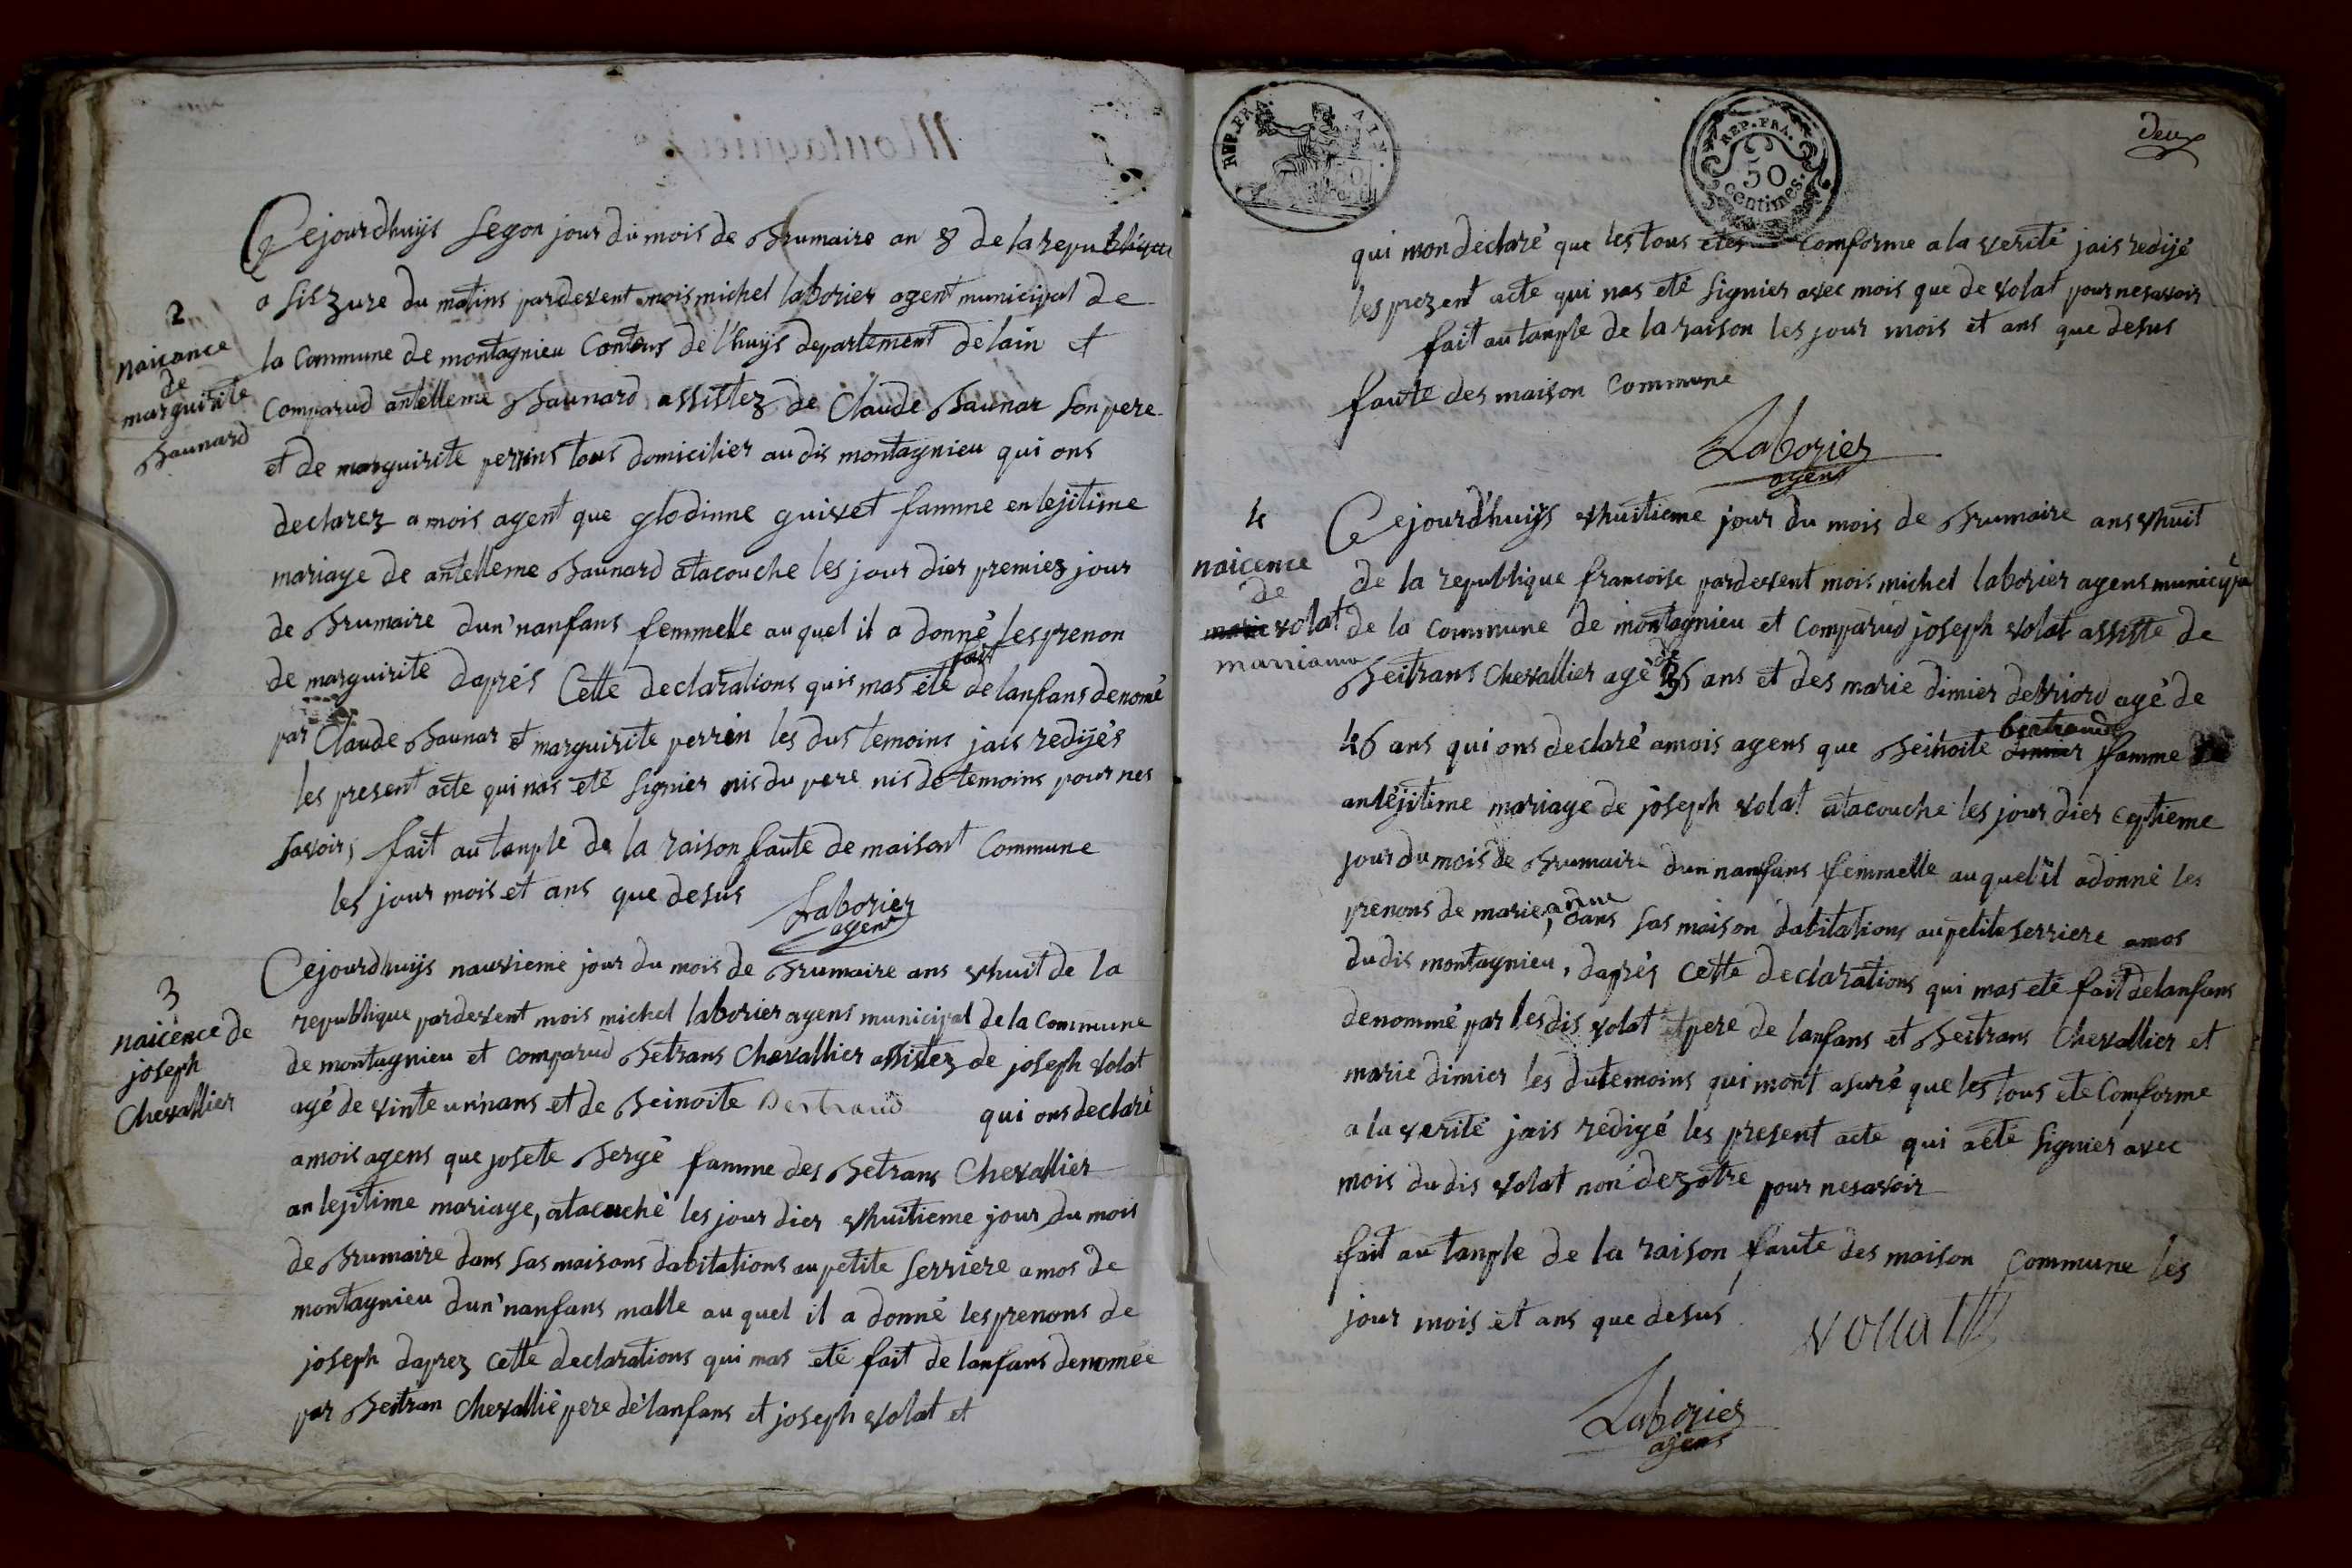 Cejourdhuijs segon jour du mois de Brumaire an 8 de la republique
2
naicance
de
marguirite
Baunard
a siszure du matins pardevent mois michel laborier agent municipal de
la Commune de montagnieu Contons de l'huijs departement de lain et
Comparud antelleme Baunard assistez de Claude Baunar son pere
et de marguirite perrins tous domicilier au dis montagnieu qui ons
declarez a mois agent que glodinne guivet famme en lejitime
mariage de antelleme Baunard atacouche les jour dier premier jour
de Brumaire dun'nanfans femmelle au quel il a donné les prenon
de marguirite daprés Cette declarations quis mas été fait de lanfans denomé
par Claude Baunar et marguirite perrin les dus temoins jais redijés
les present acte qui nas eté signier nis du pere nis de temoins pour nes
savoir, fait au tanple de la raison faute de maisont Commune
les jour mois et ans que desus
Laborier
agent
3
naicence de
joseph
Chevallier
Cejourdhuijs nauvieme jour du mois de Brumaire ans vhuit de la
republique pardevent mois michel laborier agens municipal de la Commune
de montagnieu et Comparud Betrans Chevallier assistez de joseph volat
agé de vinte un'nans et de Beinoite Bertraud qui ons declaré
a mois agens que josete Bergé famme des Betrans Chevallier
an lejitime mariage, atacuché les jour dier vhuitieme jour du mois
de Brumaire dans sas maisons dabitations au petite serriere amos de
montagnieu dun'nanfans malle au quel il a donné les prenons de
joseph daprez cette declarations qui mas eté fait de lanfans denomée
par Beitran Chevallié pere de lanfans et joseph volat et
REP. FRA.
AIN.
REP. FRA.
50
centimes.
Deux
qui mon declaré que les tous etes Comforme a la verité jais redijé
les prezent acte qui nas eté signier avec mois que de volat pour nesavoir
fait au tanple de la raison les jour mois et ans que desus
faute des maison Commune
Laborier
agens
4
naicence
de
marie volat
marrianne
Cejourd'huijs vhuitieme jour du mois de Brumaire ans vhuit
de la republique francoise pardevent mois michel laborier agens municipa
de la commune de montagnieu et Comparud joseph volat assisté de
Beitrans Chevallier agé de 36 ans et des marie dimier debriord agé de
46 ans qui ons declaré amois agens que Beinoite dimier bertraude famme
an léjitime mariage de joseph volat atacouche les jour dier eptieme
jour du mois de Brumaire dun nanfans femmelle au quel il a donné les
prenons de marie, anne dans sas maison dabitations au petite serriere amos
du dis montagnieu, daprés cette declarations qui mas eté fait de lanfans
denommé par les dis volat et pere de lanfans et Beitrans Chevallier et
marie dimier les dutemoins qui mont asuré que les tous ete Comforme
a la verité jais redigé les present acte qui aeté signier avec
mois du dis volat non dezotre pour nesavoir
fait au tanple de la raison faute des maison Commune les
jour mois et ans que desus
vollat
Laborier
agens